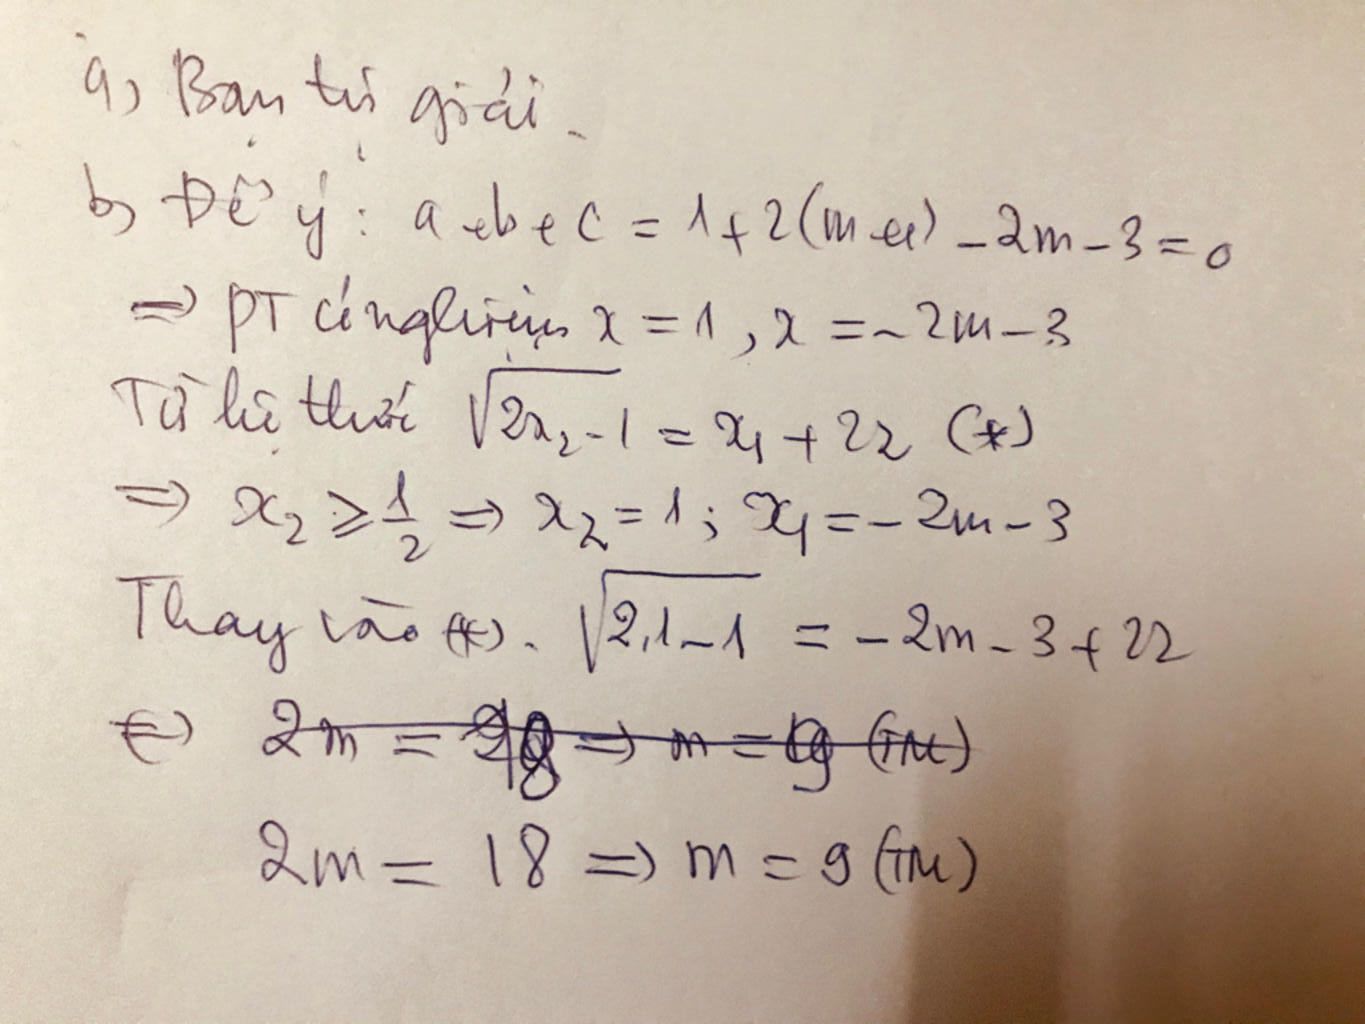 a) Bạn tự giải.
b) Để ý: a+b+c = 1+2(m+1)-2m-3=0
=> PT có nghiệm x = 1, x = -2m-3
Từ hệ thức √(2x₂-1) = x₁+22 (*)
=> x₂ ≥ 1/2 => x₂ = 1; x₁ = -2m-3
Thay vào (*). √(2.1-1) = -2m-3+22
<=> 2m = 18 => m = 9 (TM)
2m = 18 => m = 9 (TM)